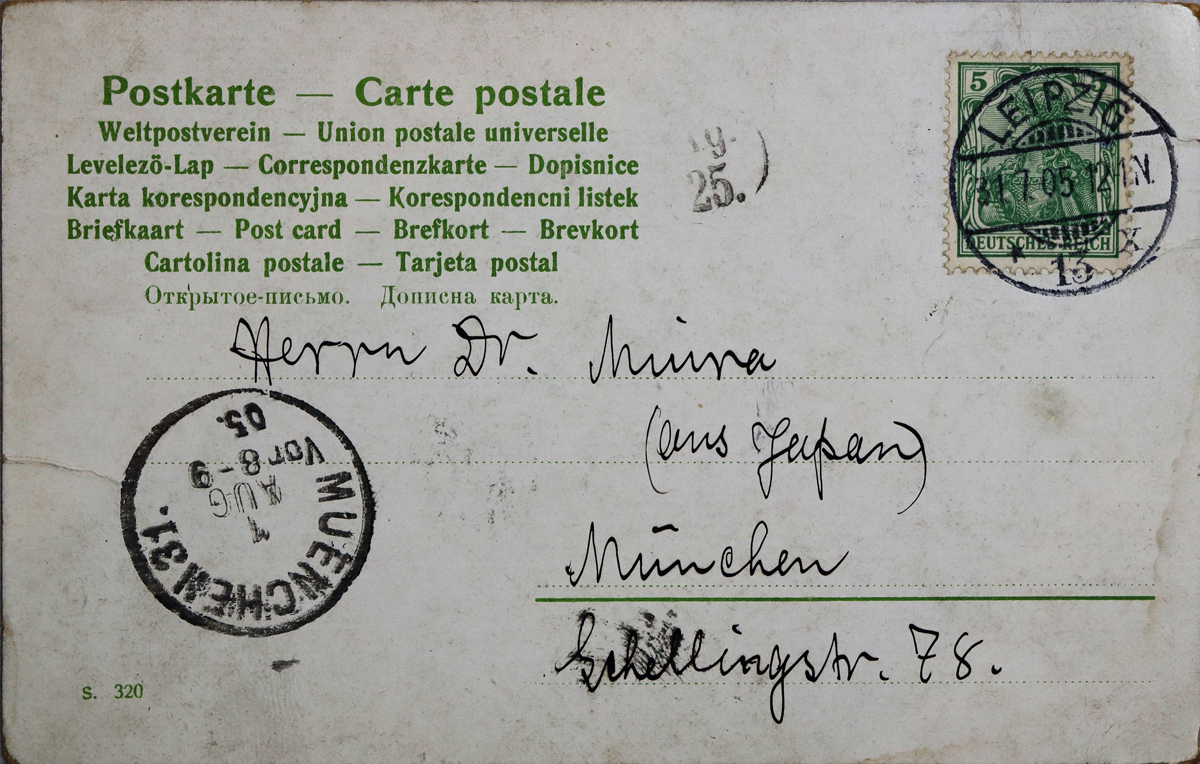 Postkarte — Carte postale
Weltpostverein — Union postale universelle
Levelezö-Lap — Correspondenzkarte — Dopisnice
Karta korespondencyjna — Korespondencni listek
Briefkaart — Post card — Brefkort — Brevkort
Cartolina postale — Tarjeta postal
Открытое-письмо. Дописна карта.
25.
5
DEUTSCHES REICH
LEIPZIG
31.7.05.12-1N.
* 13 X
Herrn Dr. Miura
(aus Japan)
München
Schellingstr. 78.
MUENCHEN 31.
1
AUG
Vor 8-9
05.
S. 320